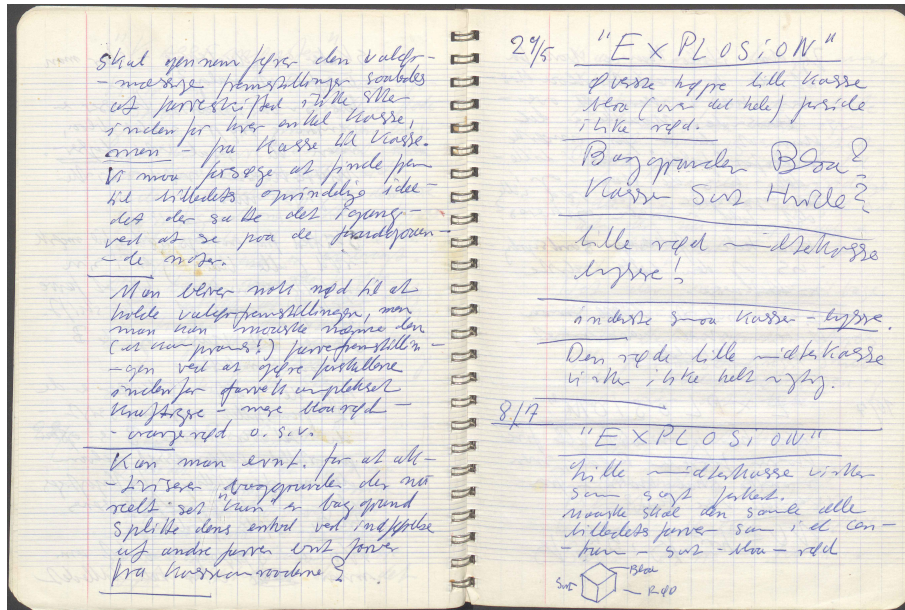 skal gennemføres den valør-
-mæssige fremstilling saaledes
at farveskiftet ikke sker
indenfor hver enkel kasse,
men - fra kasse til kasse.
Vi maa forsøge at finde frem
til billedets oprindelig idee -
det der satte det igang -
ved at se paa de foregaaen-
-de noter.
Man bliver nok nød til at
holde valørfremstillingen, men
man kan maaske nærme den
(et kompromis!) farvefremstillin-
-gen ved at gøre forskellene
indenfor farvekomplekset
kraftigere - mere blaa rød -
- orange rød o.s.v.
Kan man evnt. for at akt-
-iviserer baggrunden der nu
reelt set "kun" er baggrund
splitte dens enhed ved indføjelse
af andre farver evnt farver
fra kasseomraaderne?
29/5 "EXPLOSION"
Øverste højre lille kasse
blaa (over det hele) forside
ikke rød.
Baggrunden Blaa?
Kassen Sort Hvide?
lille rød midterkasse
lysere!
inderste smaa kasser - lysere.
Den røde lille midterkasse
virker ikke helt rigtig.
8/7
"EXPLOSION"
Lille midterkasse virker
som sagt forkert.
Maaske skal den samle alle
billedets farver som i et cen-
-trum - sort - blaa - rød
Blaa
Sort
Rød